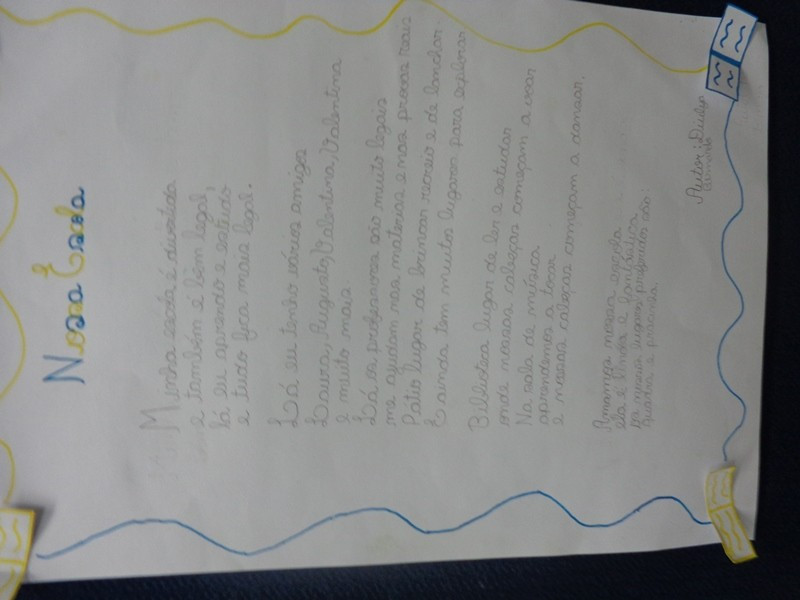 Nossa Escola
Minha escola é divertida
e também é bem legal,
lá eu aprendo e estudo
e tudo fica mais legal.
Lá eu tenho vários amigos
Laura, Augusto, Valentina, Valentina
e muito mais
Lá os professores são muito legais
me ajudam nas materias e nas provas mais
Patio lugar de brincar recreio e de lanchar.
E ainda tem muitos lugares para explorar
Biblioteca lugar de ler e estudar
onde nossas cabeças começam a voar
Na sala de música
aprendemos a tocar
e nossas cabeças começam a dansar.
Amamos nossa escola
ela é linda e fantástica
os nossos lugares preferidos são:
quadra e pracinha.
Autor: